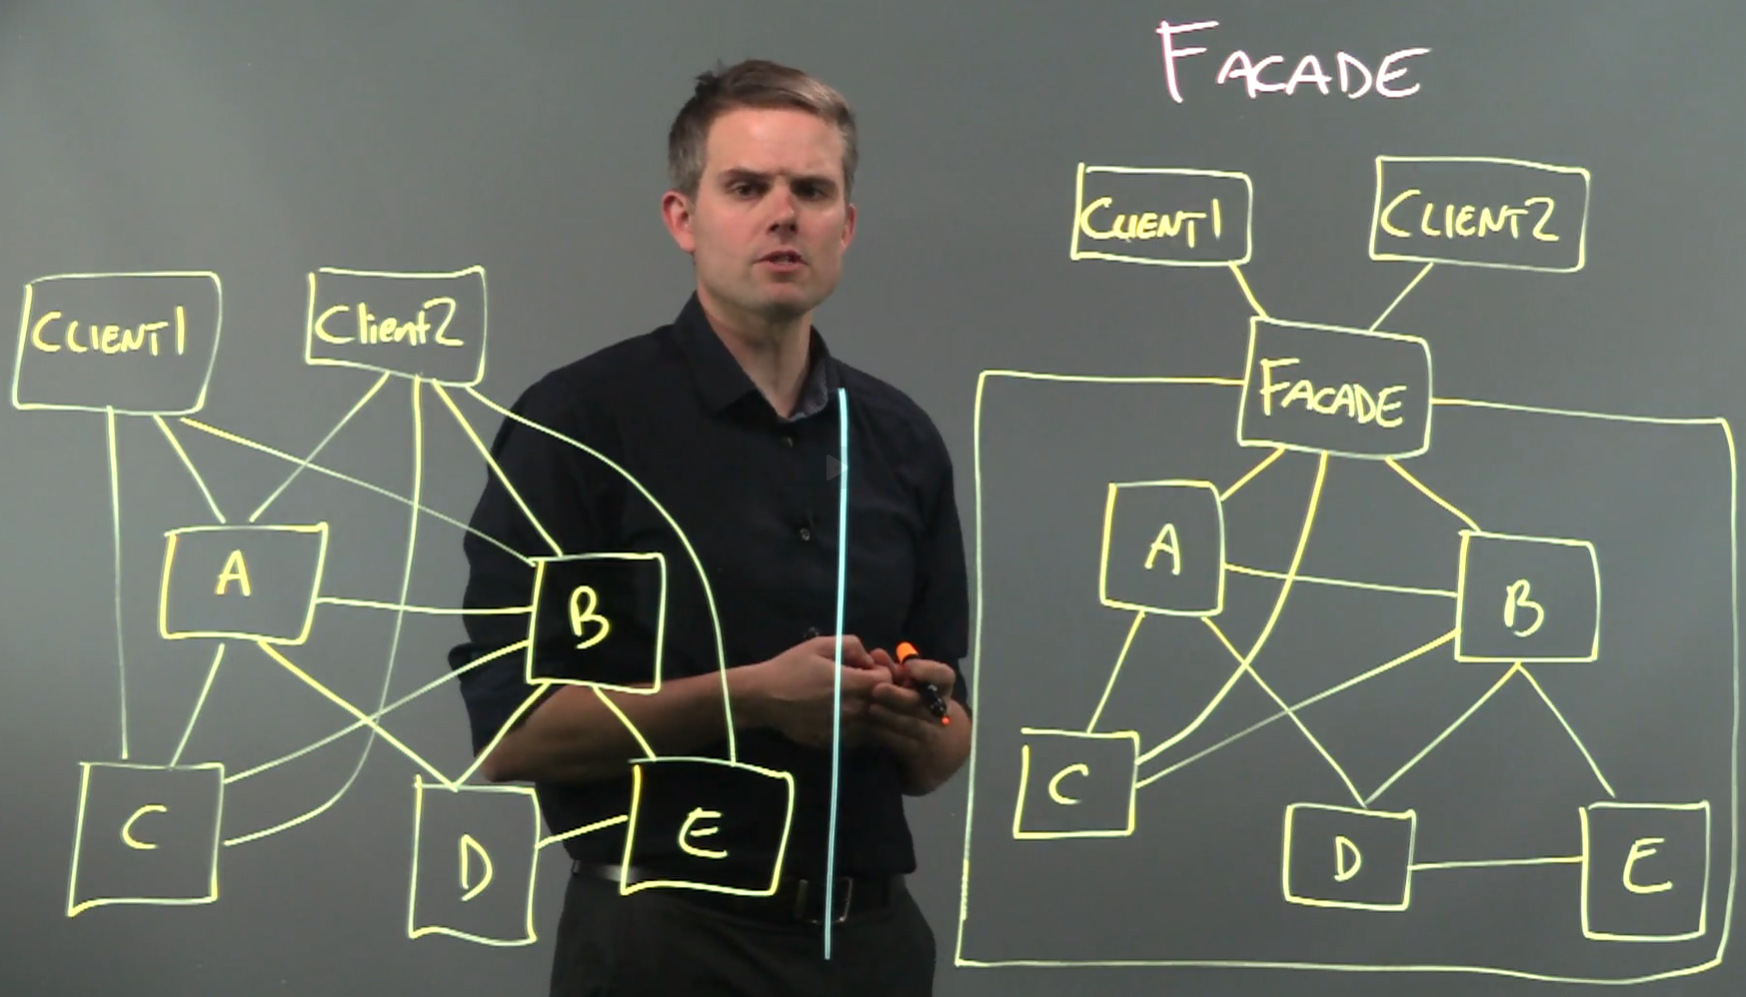 FACADE
CLIENT1
Client2
A
B
C
D
E
CLIENT1
CLIENT2
FACADE
A
B
C
D
E